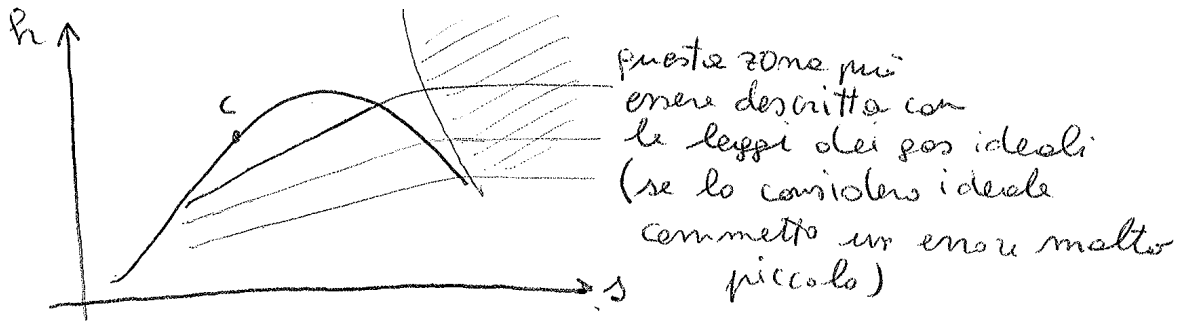 h
C
questa zona può
essere descritta con
le leggi dei gas ideali
(se lo considero ideale
commetto un errore molto
piccolo)
s